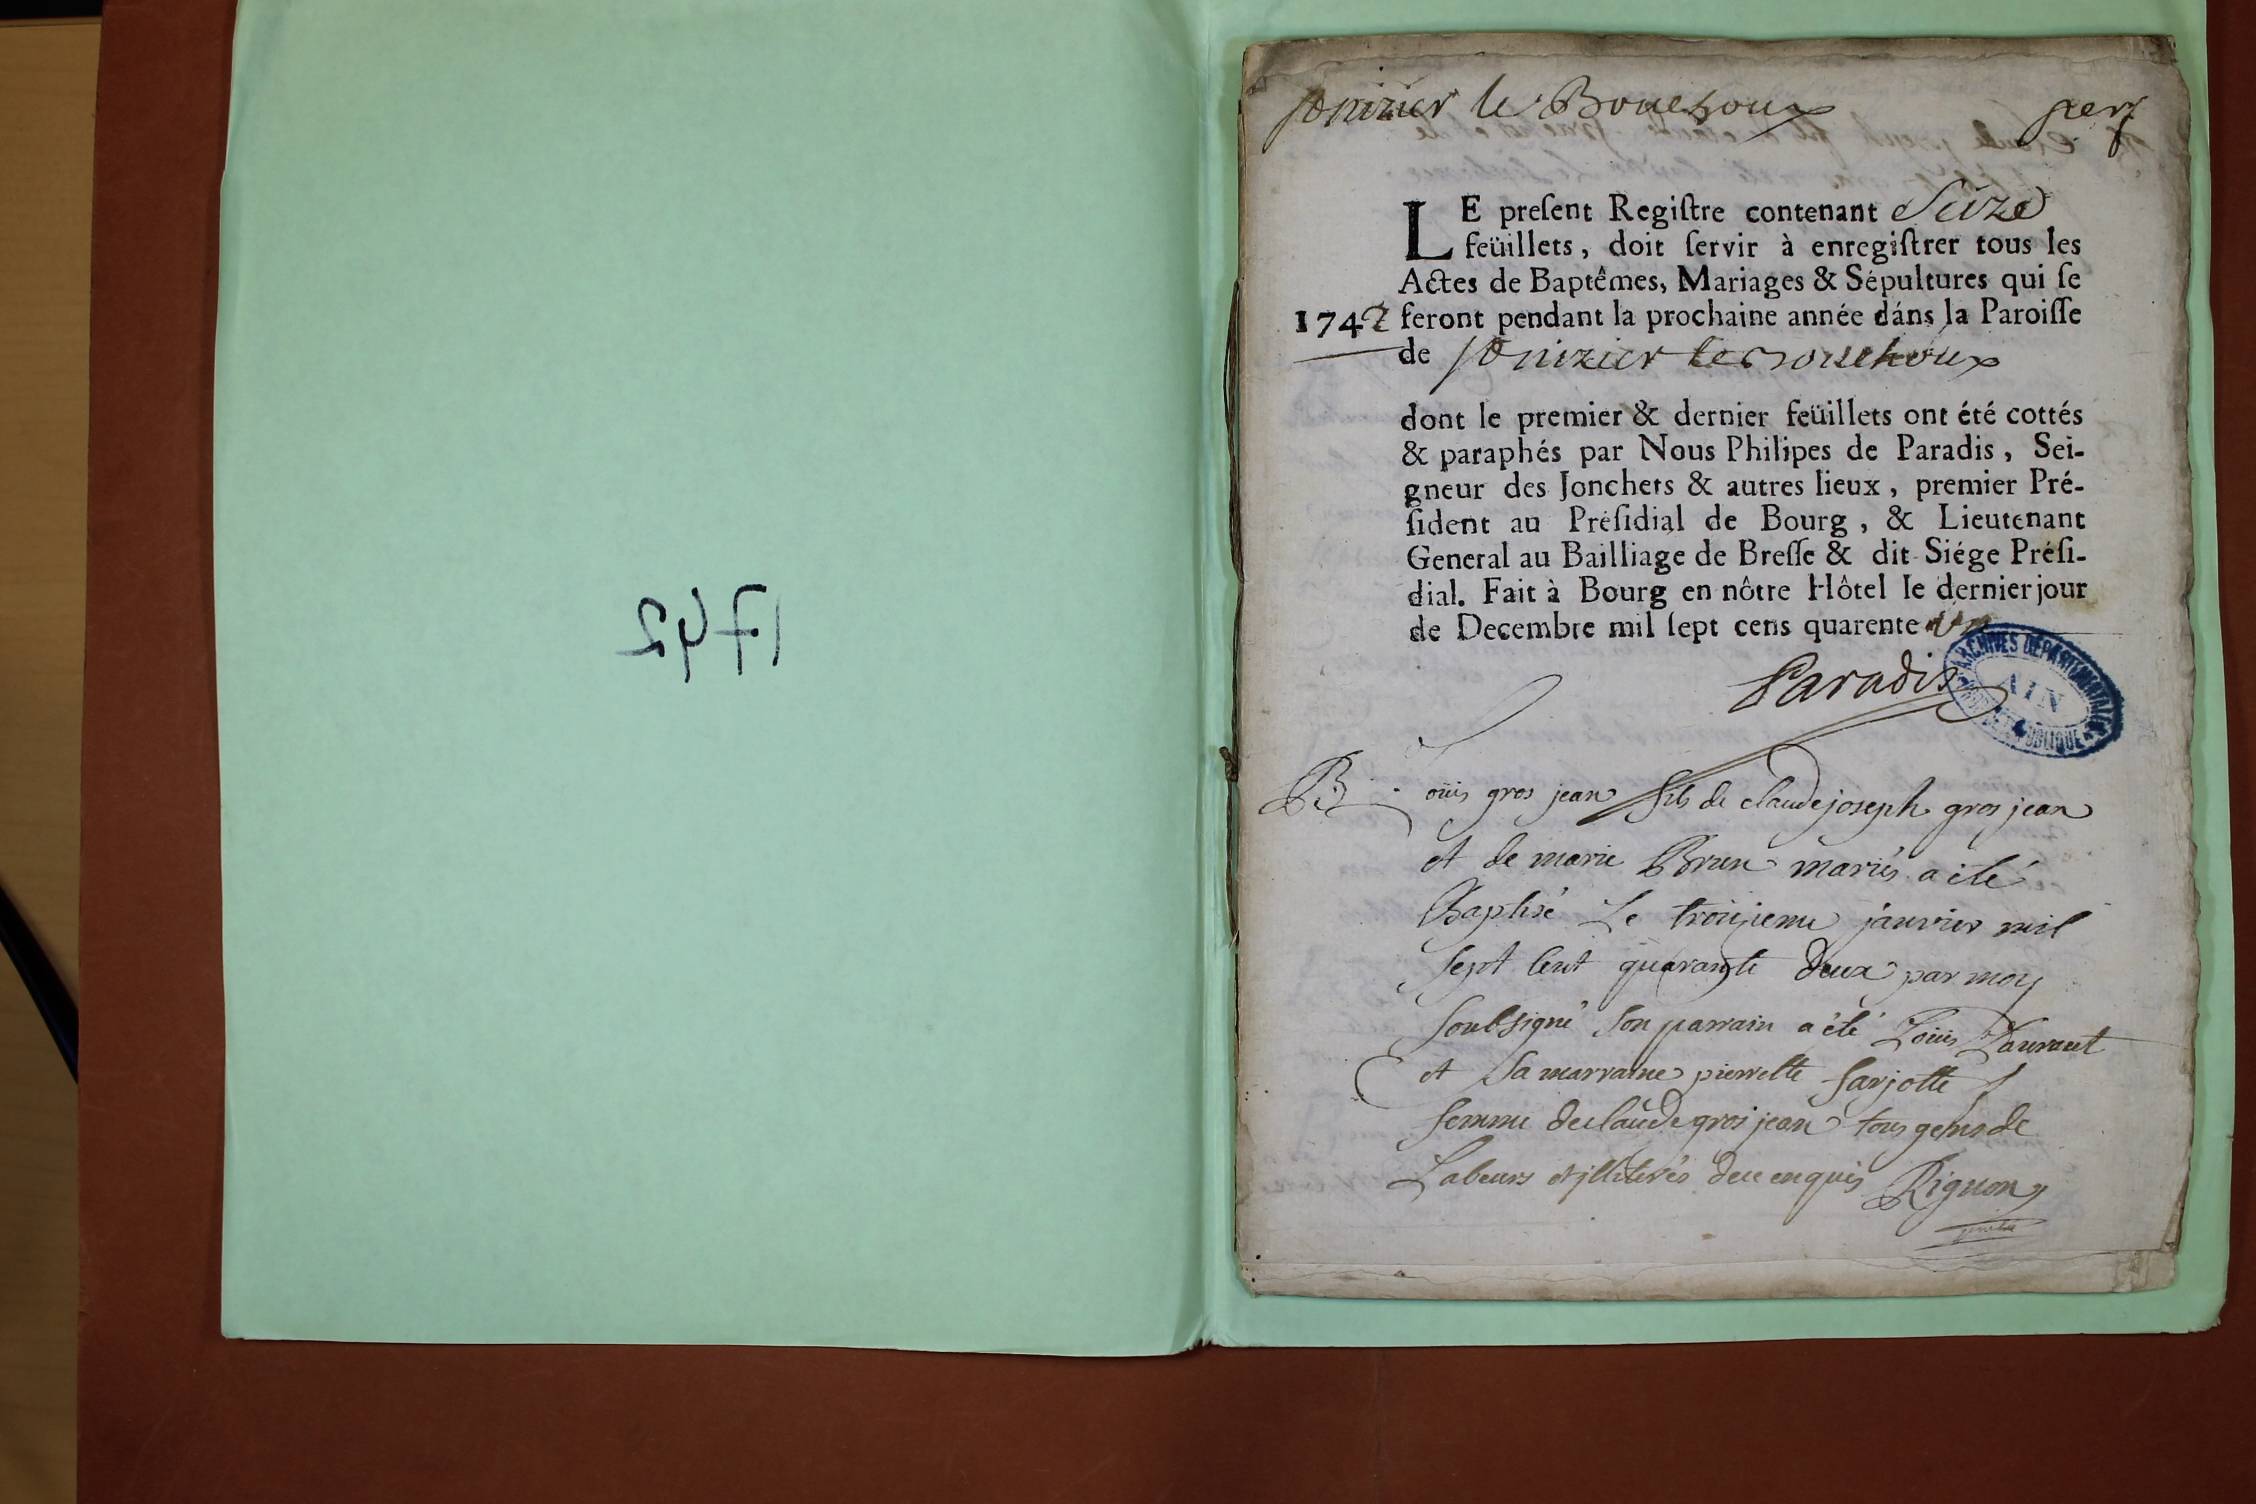 1742
St nizier le Bouchoux
per
LE preſent Regiſtre contenant Seize
feüillets, doit ſervir à enregiſtrer tous les
Actes de Baptêmes, Mariages & Sépultures qui ſe
1742 feront pendant la prochaine année dáns la Paroiſſe
de St nizier le Bouchoux
dont le premier & dernier feüillets ont été cottés
& paraphés par Nous Philipes de Paradis, Sei-
gneur des Jonchets & autres lieux, premier Pré-
ſident au Préſidial de Bourg, & Lieutenant
General au Bailliage de Breſſe & dit Siége Préſi-
dial. Fait à Bourg en nôtre Hôtel le dernier jour
de Decembre mil ſept cens quarente un
Paradis
ARCHIVES DÉPARTEMENTALES
AIN
B Loüis gros jean fils de claude joseph gros jean
et de marie Brun mariés a eté
Baptisé Le troisieme janvier mil
sept cent quarante deux par moy
soubsigné son parrain a été Loüis Laurant
et Sa marraine pierrette farjotte
femme de claude gros jean tous gens de
Labeurs et jlliterés de ce enquis Rignon